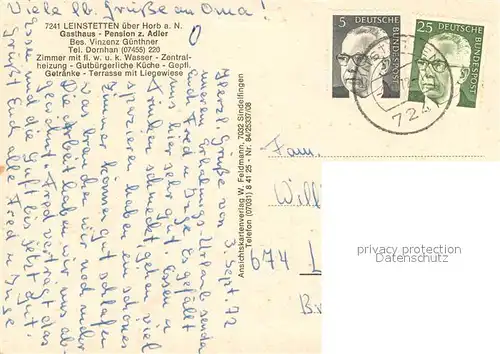 Viele lb. Grüße an Oma!
7241 LEINSTETTEN über Horb a. N.
Gasthaus - Pension z. Adler
Bes. Vinzenz Günthner
Tel. Dornhan (07455) 220
Zimmer mit fl. w. u. k. Wasser - Zentral-
heizung - Gutbürgerliche Küche - Gepfl.
Getränke - Terrasse mit Liegewiese
3. Sept. 72
Herzl. Grüße von
unseren Erholungs-Urlaub senden
Euch Fred u. Inge. Es gefällt
uns hier sehr gut. Essen u.
Trinken schmeckt, gehen viel
spazieren, haben ein schönes
Zimmer, können gut schlafen
was brauchen wir noch mehr
Die Arbeit haben wir uns ab-
gewöhnt. Fred verträgt das
Essen und die Luft bis jetzt gut.
Grüßt Euch alle Fred u. Inge
Ansichtskartenverlag W. Feldmann, 7032 Sindelfingen
Telefon (07031) 8 41 25 - Nr. 84/25337/08
5
DEUTSCHE
BUNDESPOST
25
DEUTSCHE
BUNDESPOST
724
Fam.
Willi
674 L
privacy protection
Datenschutz